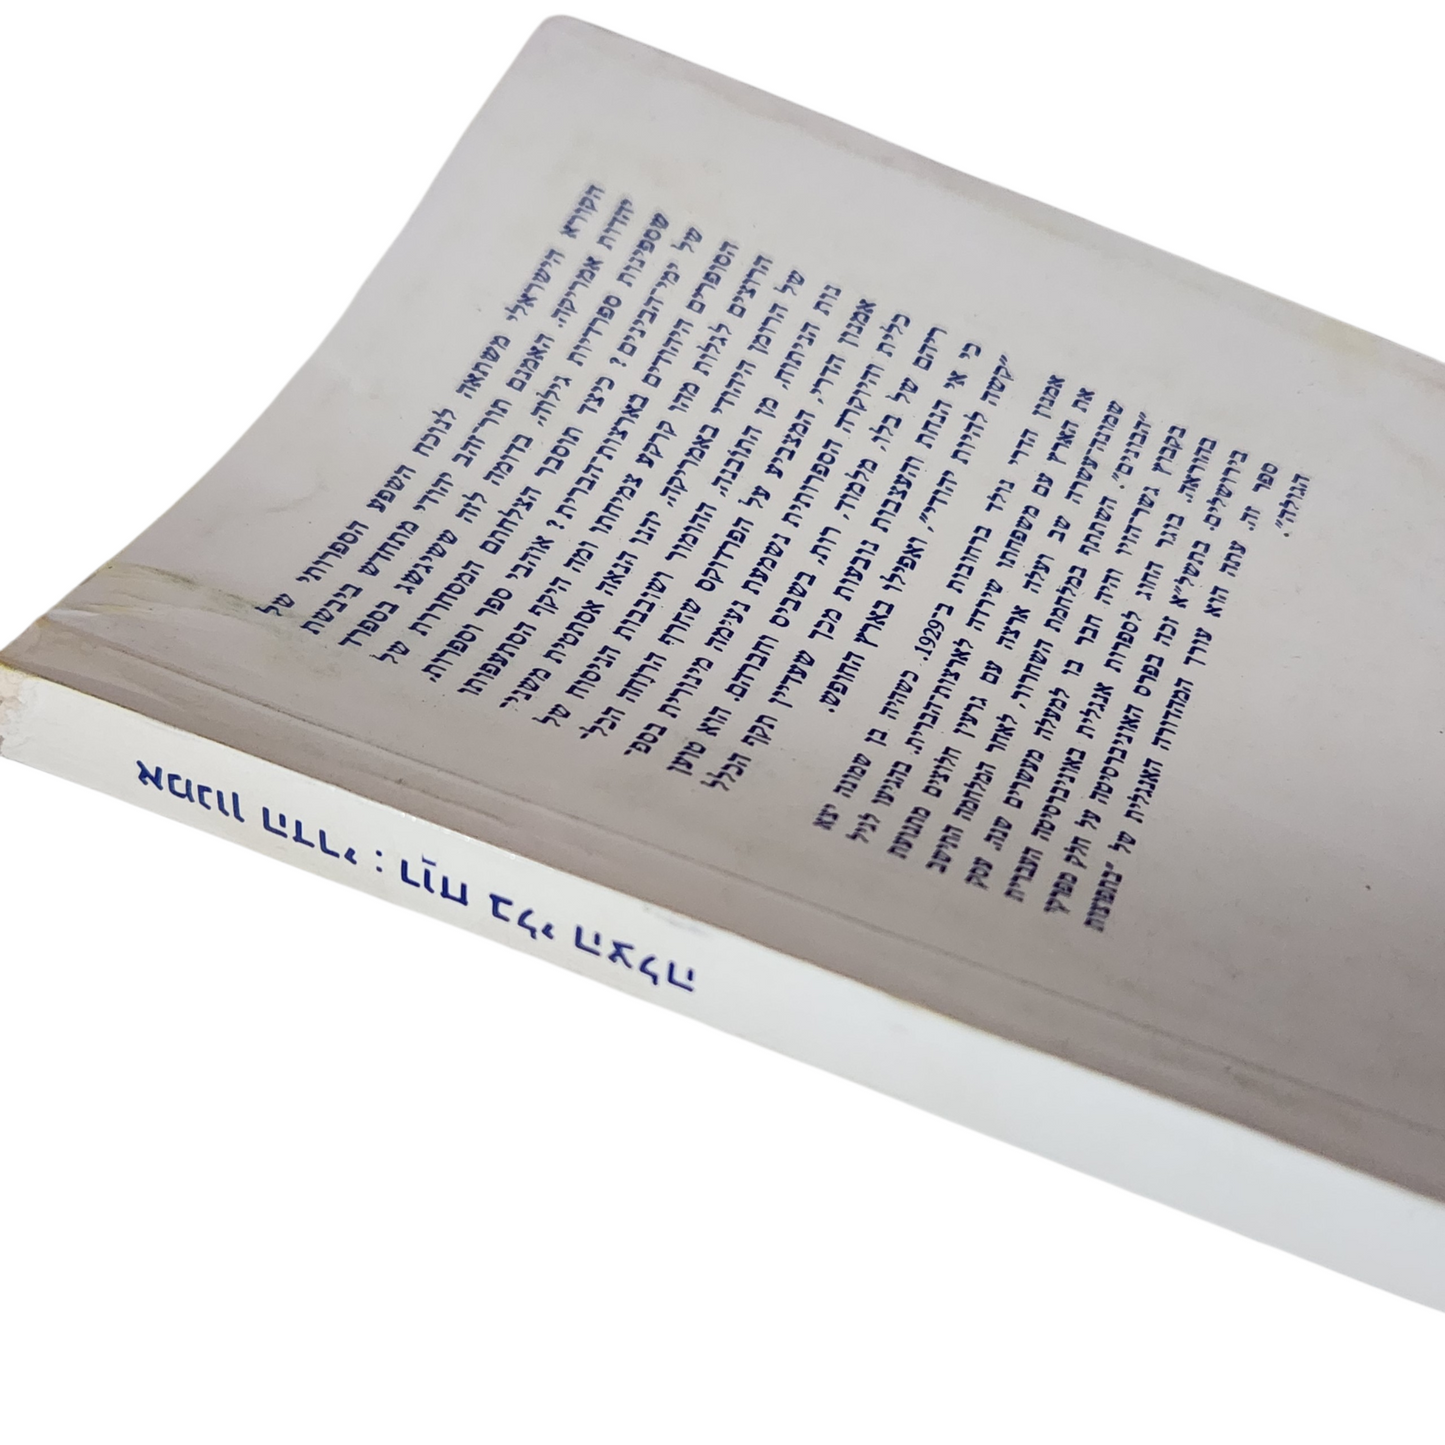 הקורא הישראלי משתאה לנוכח השפע הספרותי של
יהדות אמריקה. האמנם תור־זהב יהודי מתחדש ביבשת
שספינות ספרדיות גילוה, בדומה לזה ששיגשג בספרד
של ימי־הבינים? כיצד תוסבר הצלחתם המסחררת של
הסופרים היהודים בארצות־הברית? אוהבי ספר וספרות,
הרוצים לגלות מהו קרקע צמיחתו ומה היקף הסתעפותו
של הרומן היהודי באמריקה, יהנו הנאה אסתטית משני־
נות הניתוח, מן התובנה, ההומור ושובבות הניסוח של
אמנון הדרי, המצביע על הפרדוקס שחרף הרוחה הכל־
כלית והיוקרה הספרותית נשמעת נעימה מינורית בספ־
ריהם של בלו, מלמוד, רות, בשביס וחבריהם. הוא טוען
כי אי הנחת והעצבות נובעות מכך שעדיין תקף הכלל
"קשה להיות יהודי", ואפילו בארץ החופש.
אמנון הדרי נולד ברחובות ב־1929. כשהיה בן שמונה יצא
את הארץ עם משפחתו שירדה לארצות־הברית. בהגיעו לגיל
שמונה־עשרה שב ועלה ארצה עם גרעין חלוצים מתנועת
"הבונים". השתתף במלחמת השחרור, לאחר המלחמה התישב
בקבוץ גשר־הזיו והיה חבר בו למעלה מעשרים שנה. עסק
בהוראה. בוגר החוג לספרות אנגלית באוניברסיטה העברית
בירושלים. בתשל"א זכה בפרס האוניברסיטה על חלק מפרקי
ספר זה. עתה הוא עורך המהדורה האנגלית של "בתפוצות
הגולה"
אמנון הדרי : רֶוַח בלי הצלה